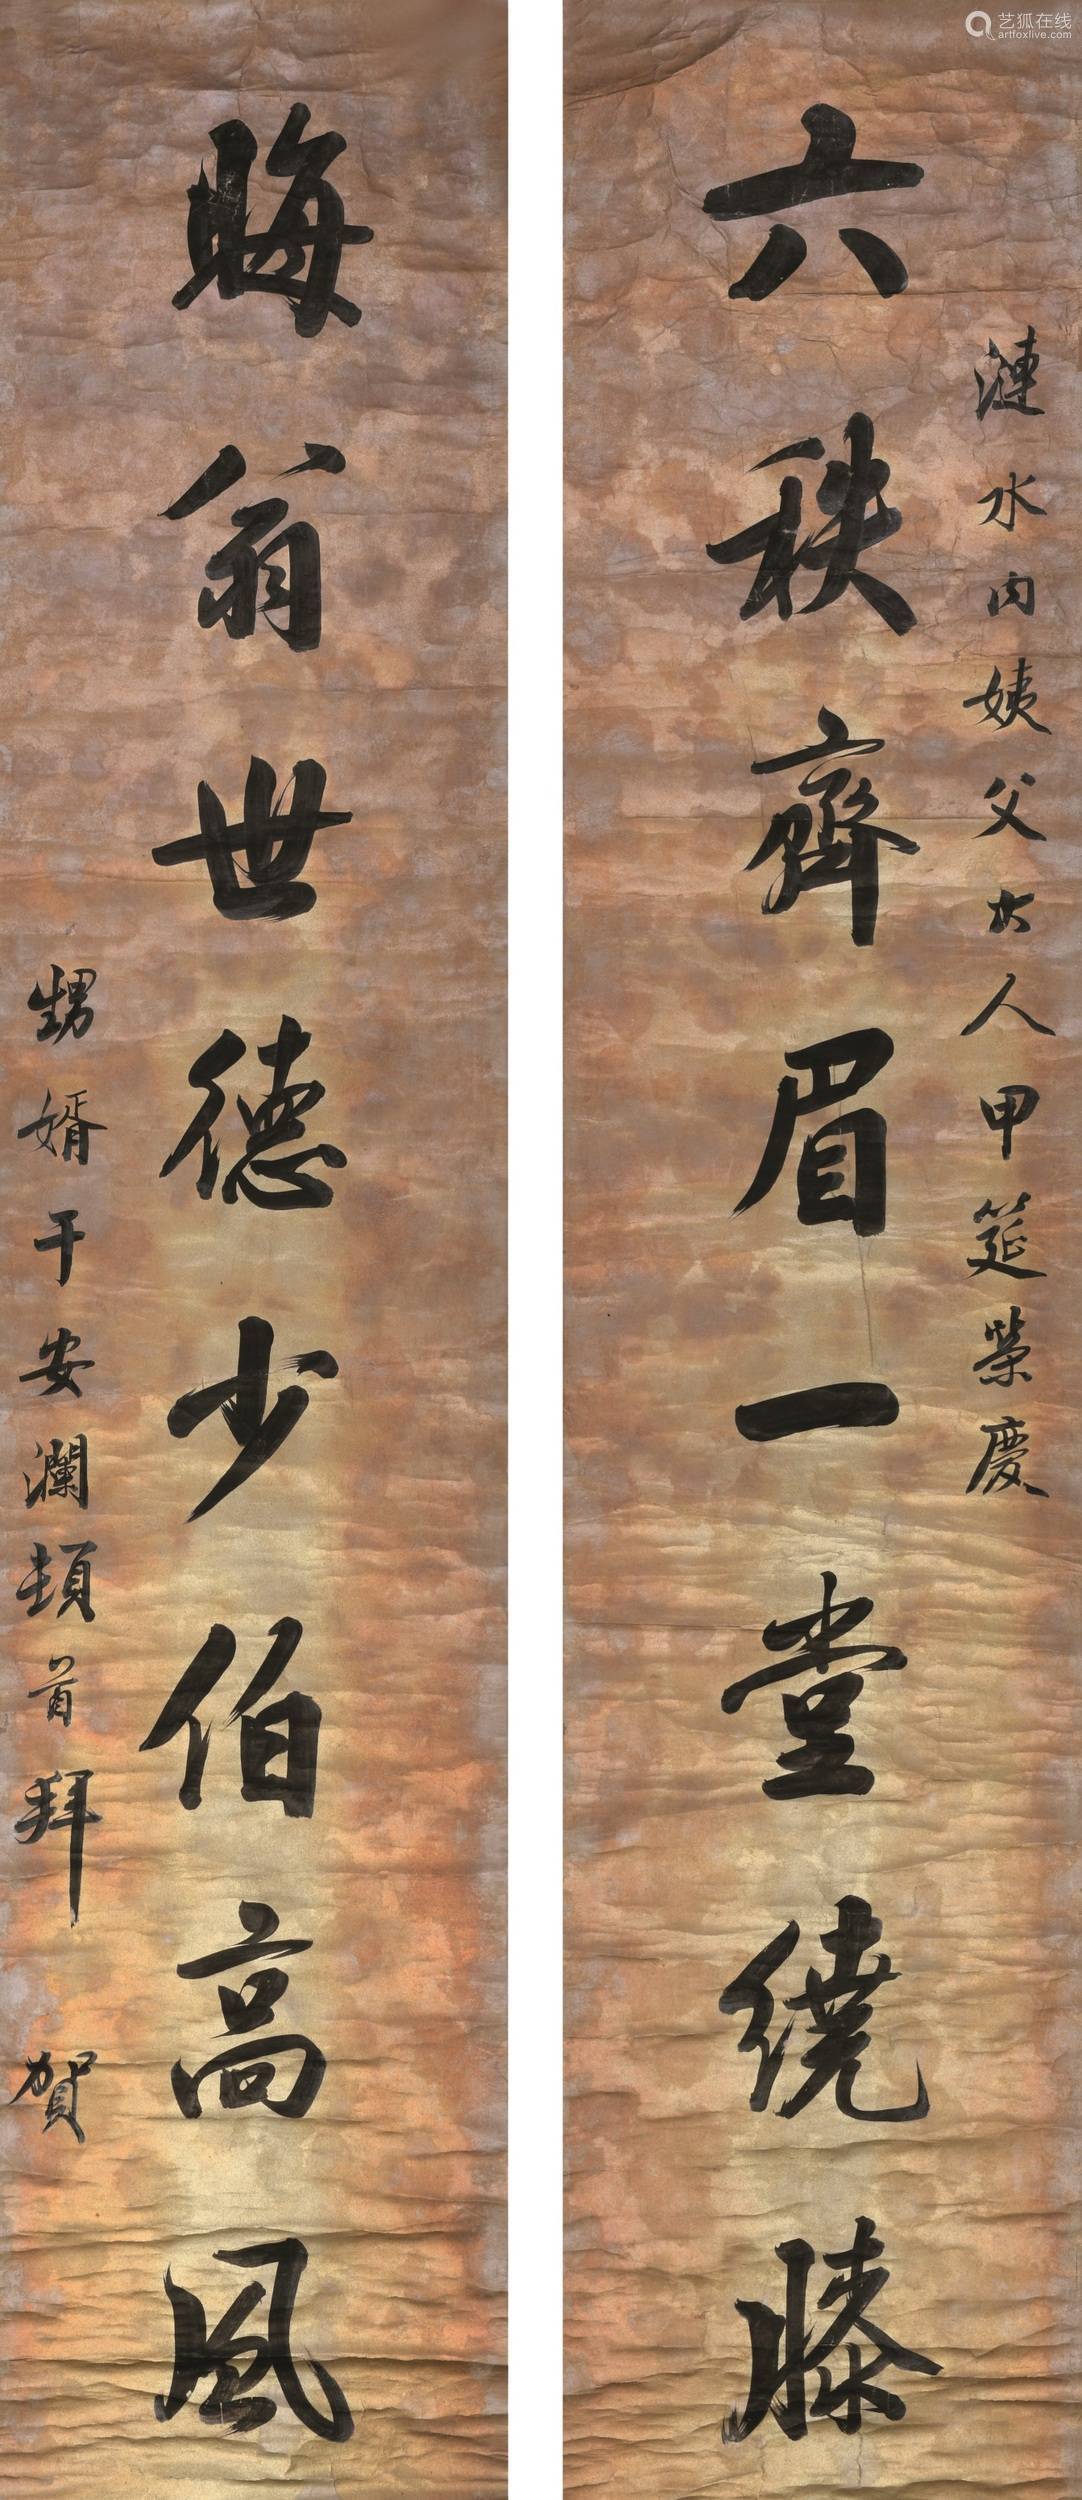 漣水內姨父大人甲筵榮慶
六秩齊眉一堂繞膝
晦翁世德少伯高風
甥婿于安瀾頓首拜賀
艺狐在线
artfoxlive.com